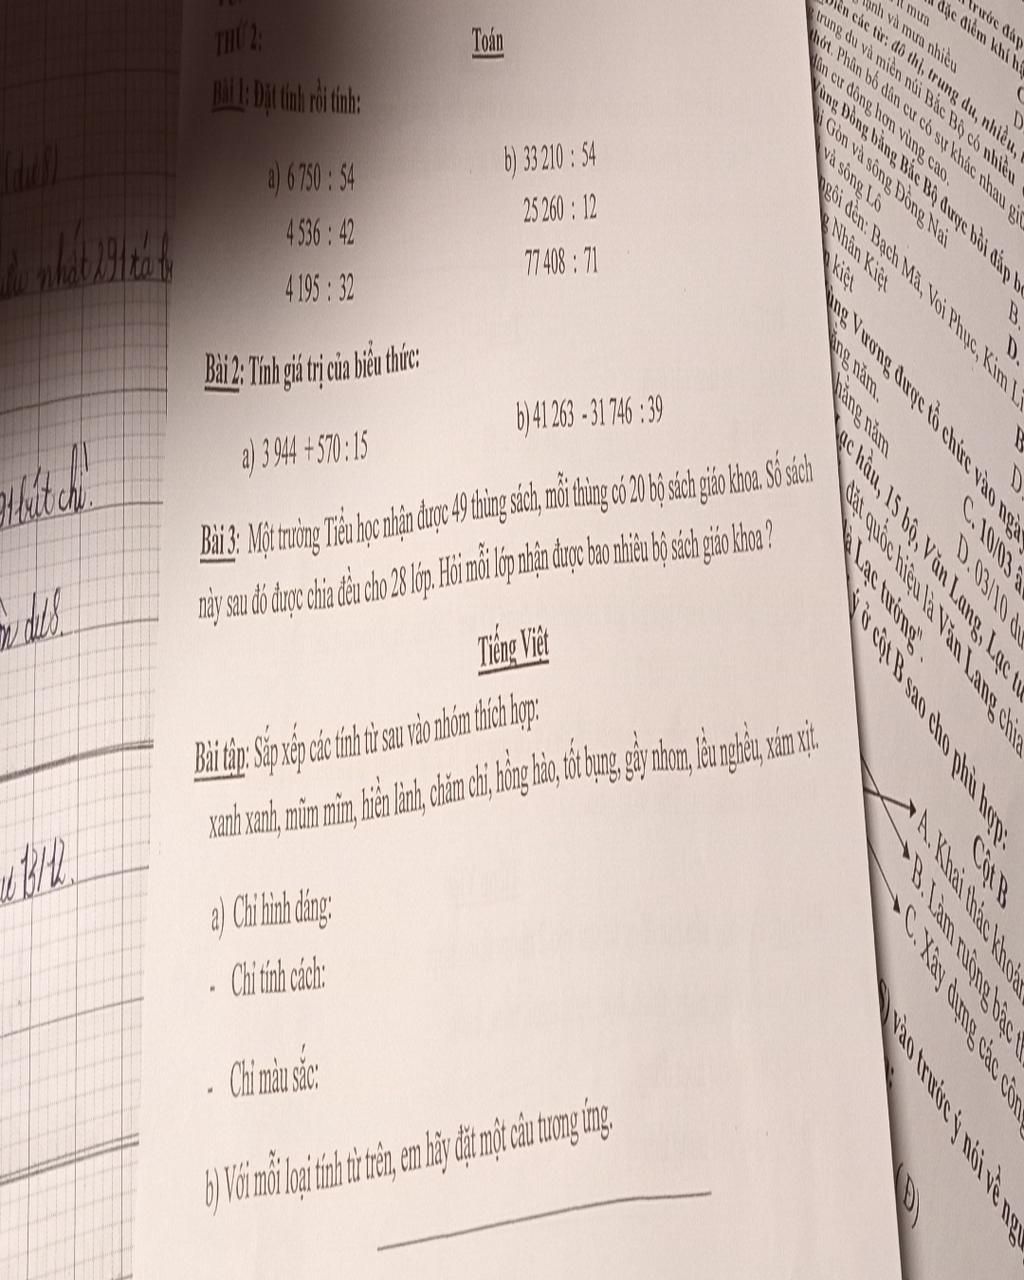 THỨ 2:
Toán
Bài 1: Đặt tính rồi tính:
a) 6 750 : 54
b) 33 210 : 54
4 536 : 42
25 260 : 12
4 195 : 32
77 408 : 71
Bài 2: Tính giá trị của biểu thức:
a) 3 944 + 570 : 15
b) 41 263 - 31 746 : 39
Bài 3: Một trường Tiểu học nhận được 49 thùng sách, mỗi thùng có 20 bộ sách giáo khoa. Số sách
này sau đó được chia đều cho 28 lớp. Hỏi mỗi lớp nhận được bao nhiêu bộ sách giáo khoa ?
Tiếng Việt
Bài tập: Sắp xếp các tính từ sau vào nhóm thích hợp:
xanh xanh, mũm mĩm, hiền lành, chăm chỉ, hồng hào, tốt bụng, gầy nhom, lều nghều, xám xịt.
a) Chỉ hình dáng:
- Chỉ tính cách:
- Chỉ màu sắc:
b) Với mỗi loại tính từ trên, em hãy đặt một câu tương ứng.
(dư 8)
nhất 291 tá
bút chì!
dư 8.
13/12.
trước đáp
đặc điểm khí
mưa
lạnh và mưa nhiều
các từ: đô thị, trung du, nhiều,
trung du và miền núi Bắc Bộ có nhiều
thớt. Phân bố dân cư có sự khác nhau
dân cư đông hơn vùng cao.
Vùng Đồng bằng Bắc Bộ được bồi đắp
Gòn và sông Đồng Nai
và sông Lô
B.
D.
ngôi đền: Bạch Mã, Voi Phục, Kim
Nhân Kiệt
kiệt
B
D.
Vương được tổ chức vào ngày
năm.
hằng năm
C. 10/03
D. 03/10
hầu, 15 bộ, Văn Lang, Lạc
đặt quốc hiệu là Văn Lang chia
Lạc tướng".
ý ở cột B sao cho phù hợp:
Cột B
A. Khai thác khoáng
B. Làm ruộng bậc
C. Xây dựng các công
vào trước ý nói về
(Đ)